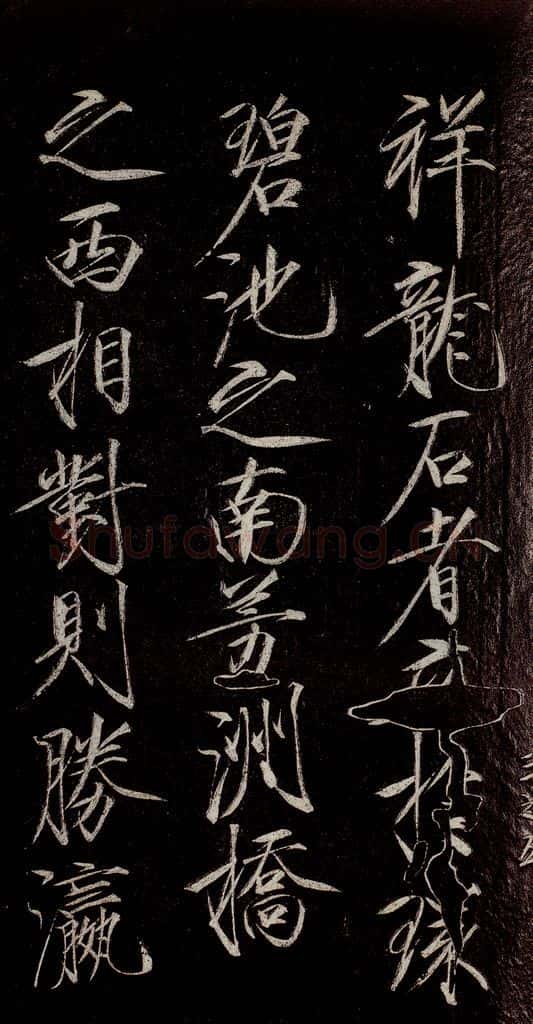 祥龍石者立於環
碧池之南芳洲橋
之西相對則勝瀛
Shufawang.cn